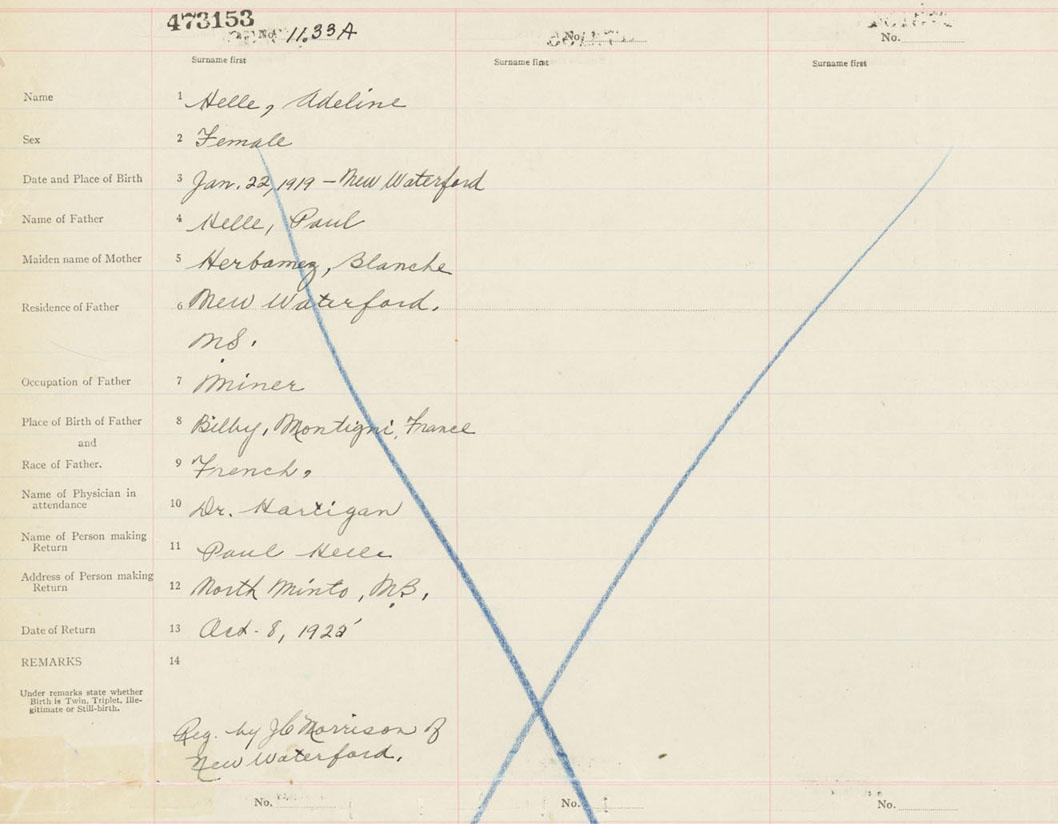 473153
No. 11.33 A
No.
No.
Surname first
Surname first
Surname first
Name 1 Helle, Adeline
Sex 2 Female
Date and Place of Birth 3 Jan. 22, 1919 – New Waterford
Name of Father 4 Helle, Paul
Maiden name of Mother 5 Herbamez, Blanche
Residence of Father 6 New Waterford.
NS.
Occupation of Father 7 Miner
Place of Birth of Father 8 Bilby, Montigni, France
and
Race of Father. 9 French,
Name of Physician in
attendance 10 Dr. Hartigan
Name of Person making
Return 11 Paul Helle
Address of Person making
Return 12 North Minto, N.B.
Date of Return 13 Oct. 8, 192
REMARKS 14
Under remarks state whether
Birth is Twin, Triplet, Ille-
gitimate or Still-birth.
Reg. by Morrison of
New Waterford.
No.
No.
No.